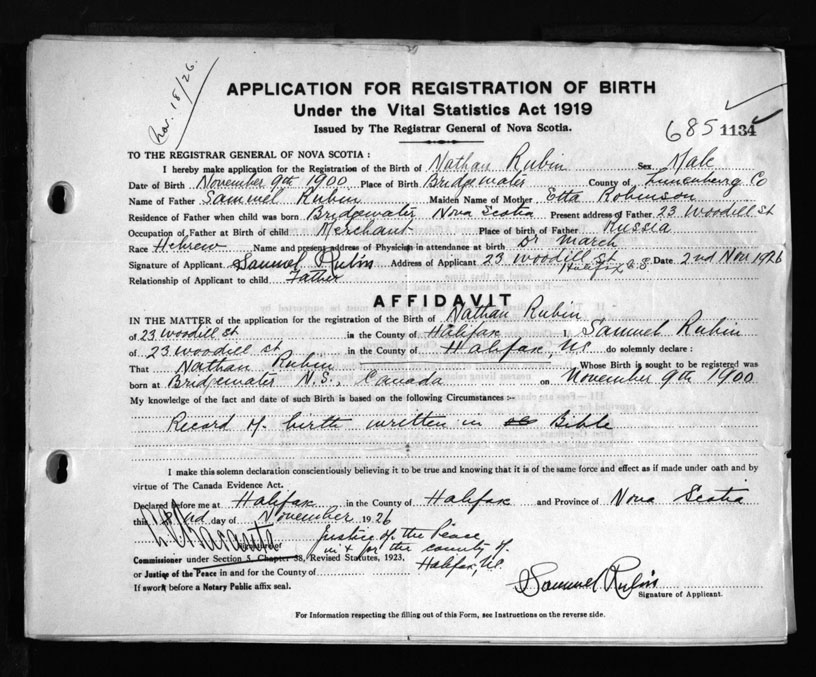 Nov. 18/26.
APPLICATION FOR REGISTRATION OF BIRTH
Under the Vital Statistics Act 1919
Issued by The Registrar General of Nova Scotia.
685 1134
TO THE REGISTRAR GENERAL OF NOVA SCOTIA :
I hereby make application for the Registration of the Birth of Nathan Rubin Sex Male
Date of Birth November 9th 1900 Place of Birth Bridgewater County of Lunenburg Co
Name of Father Samuel Rubin Maiden Name of Mother Etta Robinson
Residence of Father when child was born Bridgewater Nova Scotia Present address of Father 23 Woodill St
Occupation of Father at Birth of child Merchant Place of birth of Father Russia
Race Hebrew Name and present address of Physician in attendance at birth Dr March
Signature of Applicant Samuel Rubin Address of Applicant 23 Woodill St Halifax Date 2nd Nov 1926
Relationship of Applicant to child Father
AFFIDAVIT
IN THE MATTER of the application for the registration of the Birth of Nathan Rubin
of 23 Woodill St in the County of Halifax I, Samuel Rubin
of 23 Woodill St in the County of Halifax, do solemnly declare :
That Nathan Rubin Whose Birth is sought to be registered was
born at Bridgewater N.S., Canada on November 9th 1900
My knowledge of the fact and date of such Birth is based on the following Circumstances :-
Record of birth written in Bible
I make this solemn declaration conscientiously believing it to be true and knowing that it is of the same force and effect as if made under oath and by
virtue of The Canada Evidence Act.
Declared before me at Halifax in the County of Halifax and Province of Nova Scotia
this 2nd day of November 1926
Justice of the Peace
in & for the county of
Halifax,
Commissioner under Section 5, Chapter 38, Revised Statutes, 1923,
or Justice of the Peace in and for the County of
If sworn before a Notary Public affix seal.
Samuel Rubin
Signature of Applicant.
For Information respecting the filling out of this Form, see Instructions on the reverse side.